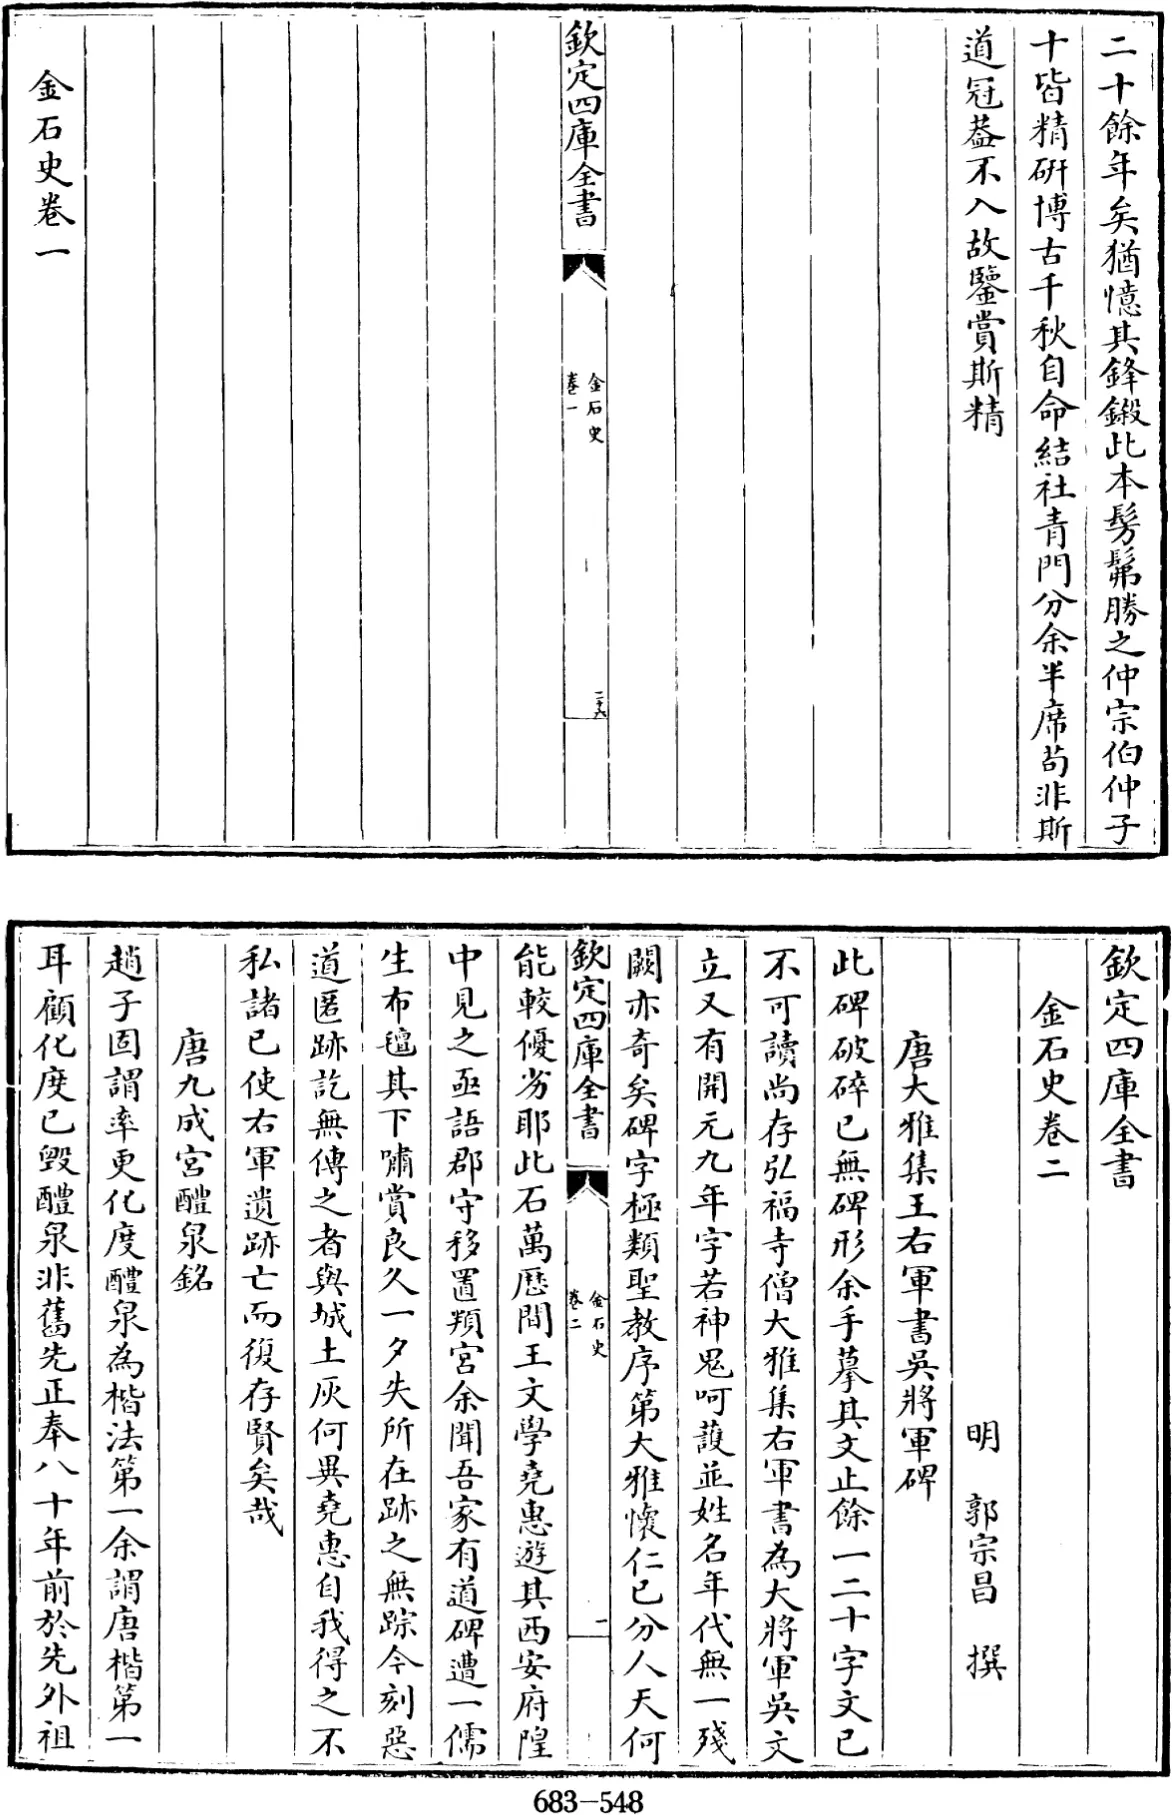 二十餘年矣猶憶其鋒鎩此本髣髴勝之仲宗伯仲子
十皆精研博古千秋自命結社青門分余半席苟非斯
道冠葢不入故鑒賞斯精
欽定四庫全書
金石史
卷一
二十六
金石史卷一
欽定四庫全書
金石史卷二
明 郭宗昌 撰
唐大雅集王右軍書吳將軍碑
此碑破碎已無碑形余手摹其文止餘一二十字文已
不可讀尚存弘福寺僧大雅集右軍書為大將軍吳文
立又有開元九年字若神鬼呵護並姓名年代無一殘
闕亦奇矣碑字極類聖教序第大雅懷仁已分人天何
欽定四庫全書
金石史
卷二
一
能較優劣耶此石萬歷間王文學堯惠遊其西安府隍
中見之亟語郡守移置頖宮余聞吾家有道碑遭一儒
生布氊其下嘯賞良久一夕失所在跡之無踪今刻惡
道匿跡訖無傳之者與城土灰何異堯惠自我得之不
私諸已使右軍遺跡亡而復存賢矣哉
唐九成宮醴泉銘
趙子固謂率更化度醴泉為楷法第一余謂唐楷第一
耳顧化度已毁醴泉非舊先正奉八十年前於先外祖
683—548